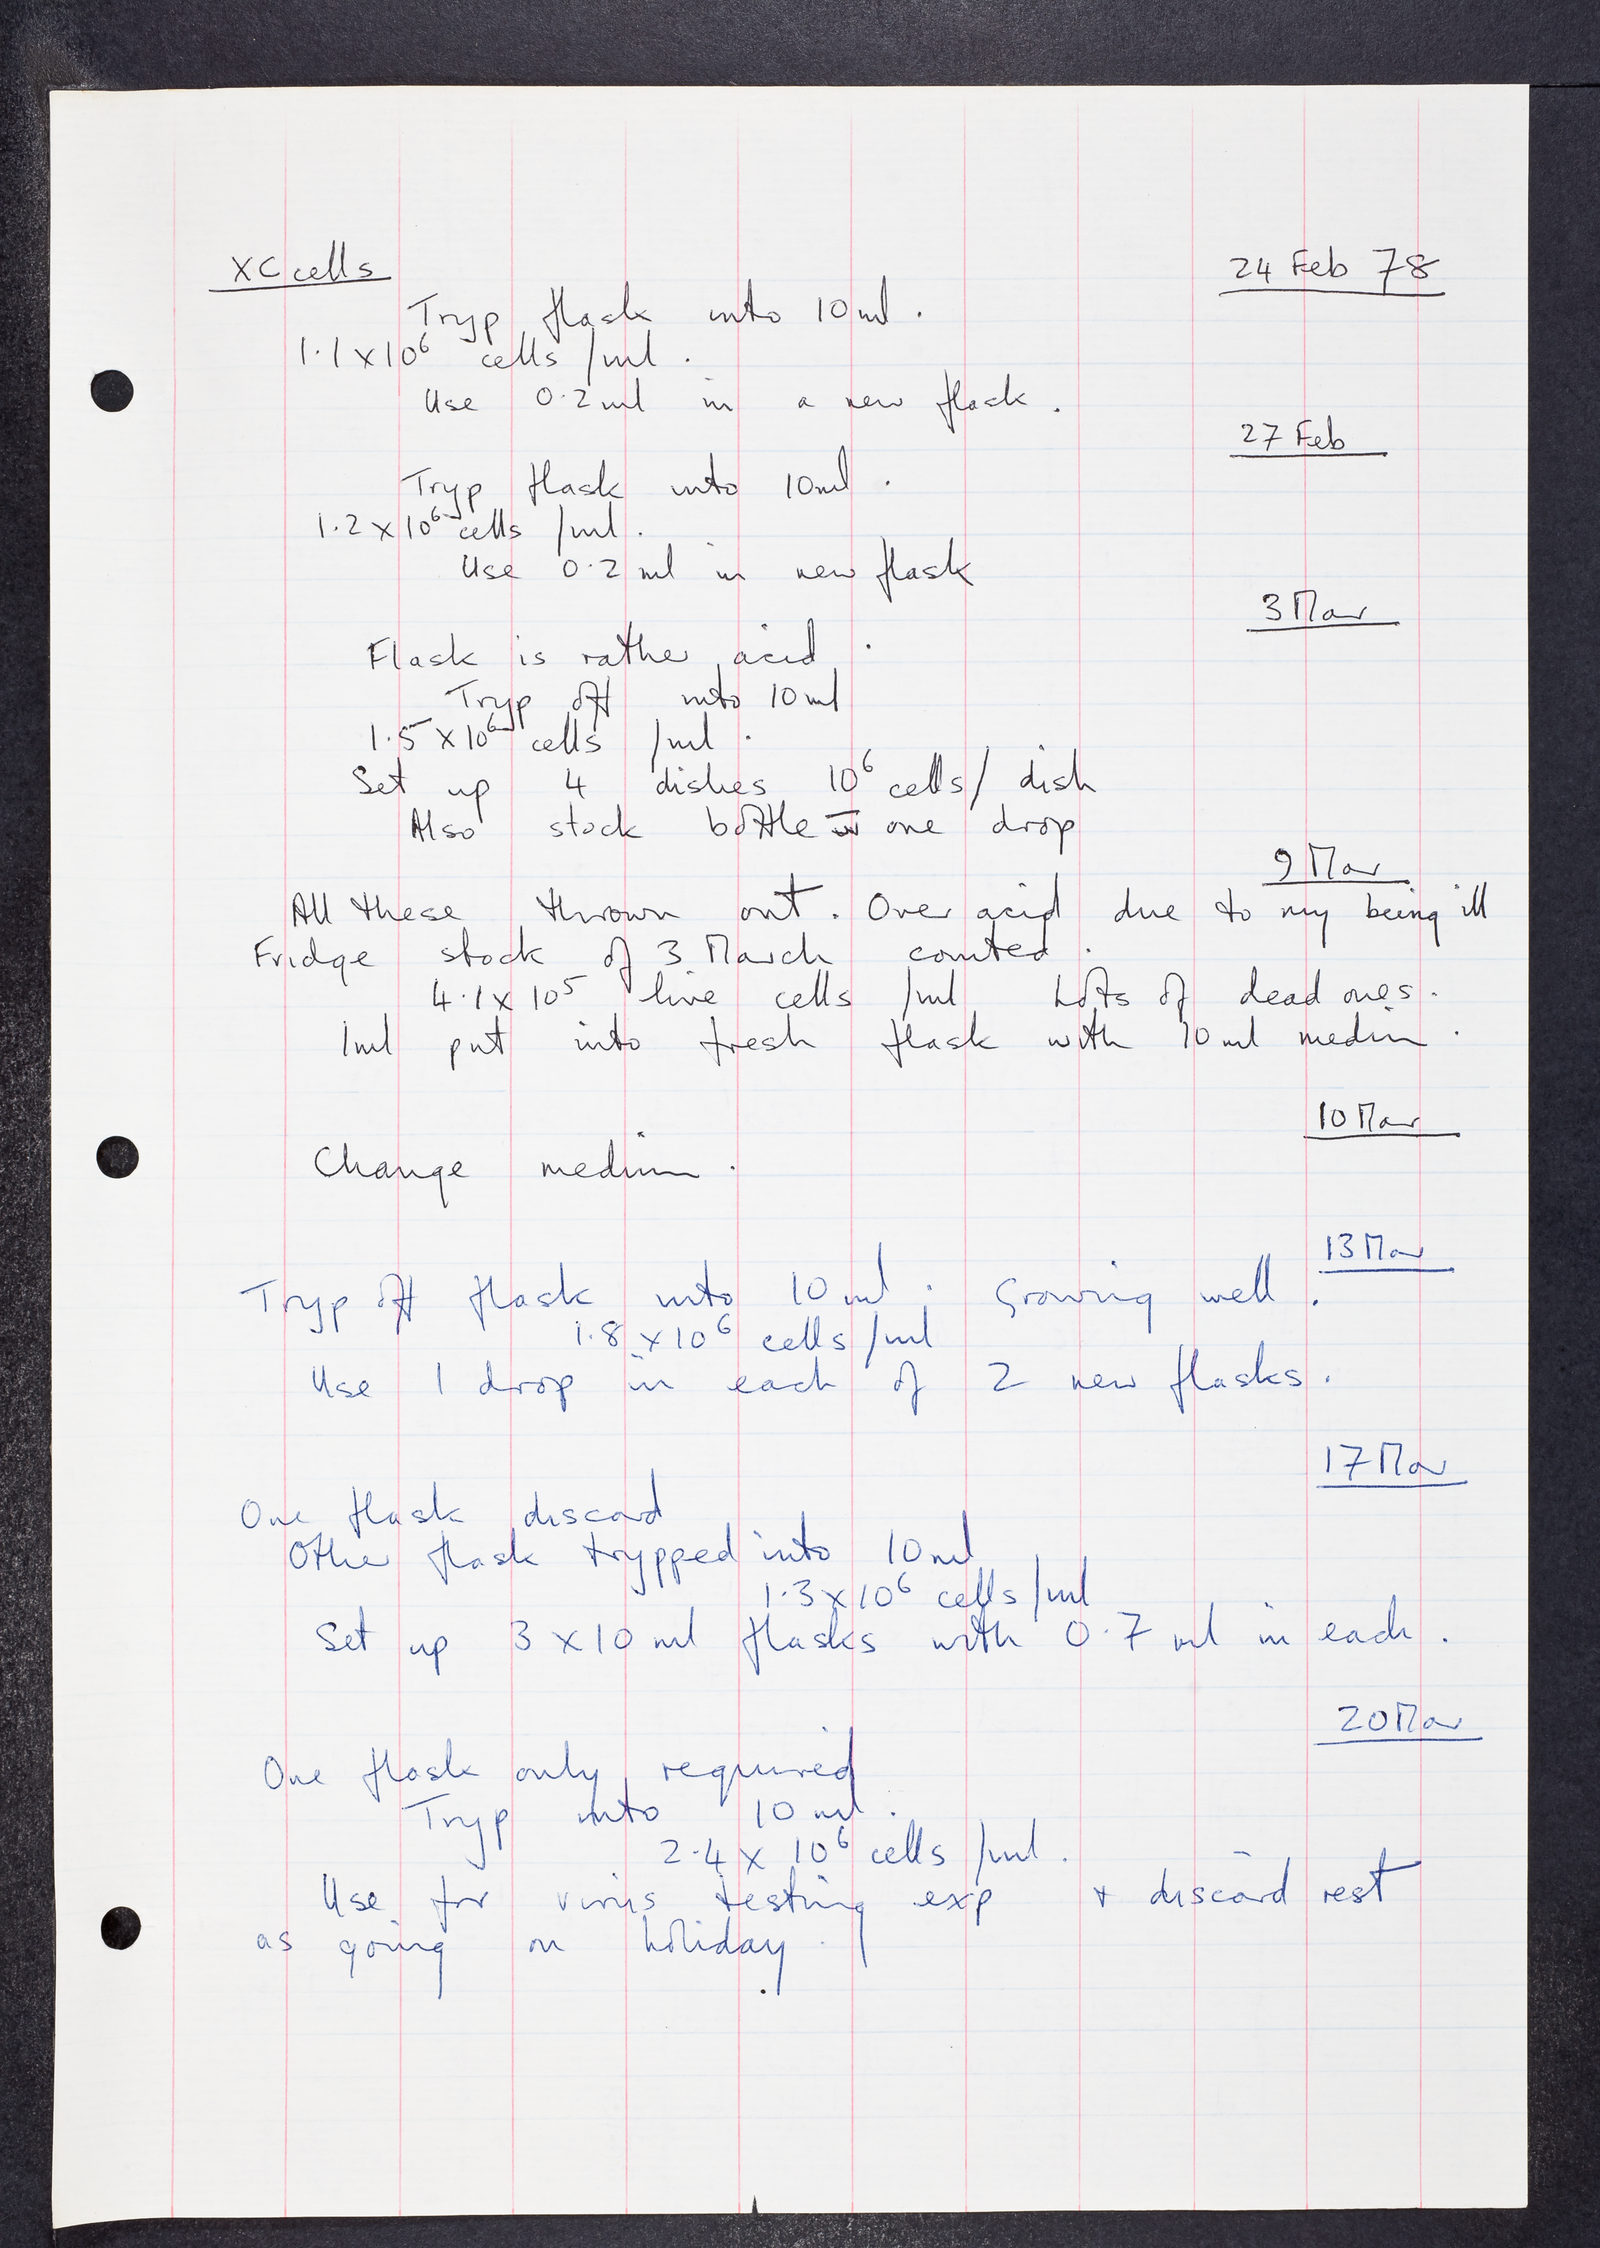 XC cells 24 Feb 78
Tryp flask into 10 ml.
1.1 x 10⁶ cells /ml.
Use 0.2 ml in a new flask.
27 Feb
Tryp flask into 10 ml.
1.2 x 10⁶ cells /ml.
Use 0.2 ml in new flask
3 Mar
Flask is rather acid.
Tryp off into 10 ml
1.5 x 10⁶ cells /ml.
Set up 4 dishes 10⁶ cells/ dish
Also stock bottle one drop
9 Mar
All these thrown out. Over acid due to my being ill
Fridge stock of 3 March counted.
4.1 x 10⁵ live cells /ml Lots of dead ones.
1 ml put into fresh flask with 10 ml medium.
10 Mar
Change medium.
13 Mar
Tryp off flask into 10 ml. Growing well.
1.8 x 10⁶ cells /ml
Use 1 drop in each of 2 new flasks.
17 Mar
One flask discard
Other flask trypped into 10 ml
1.3 x 10⁶ cells /ml
Set up 3 x 10 ml flasks with 0.7 ml in each.
20 Mar
One flask only required
Tryp into 10 ml.
2.4 x 10⁶ cells /ml.
Use for virus testing exp + discard rest
as going on holiday.